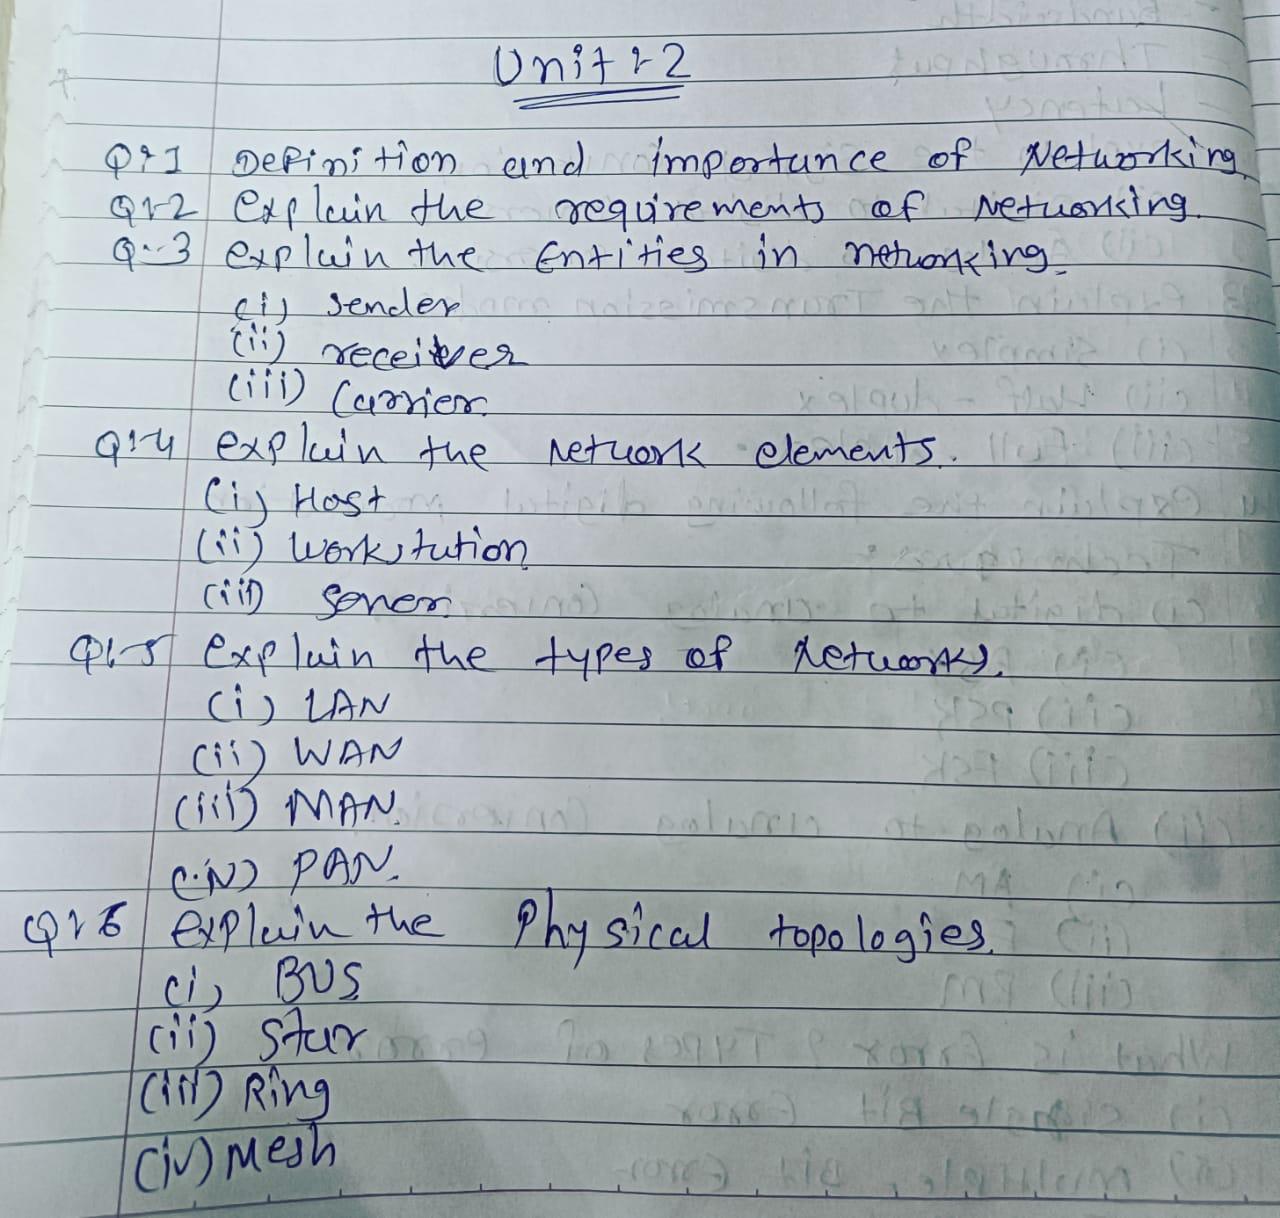 Unit :- 2
Q:1 Definition and importance of Networking.
Q:-2 Explain the requirements of Networking.
Q:-3 explain the Entities in networking.
(i) sender
(ii) receiver
(iii) Carrier.
Q:-4 explain the Network elements.
(i) Host
(ii) Workstation
(iii) Server
Q:-5 explain the types of Networks.
(i) LAN
(ii) WAN
(iii) MAN.
(iv) PAN.
Q:-6 explain the Physical topologies.
(i) BUS
(ii) Star
(iii) Ring
(iv) Mesh